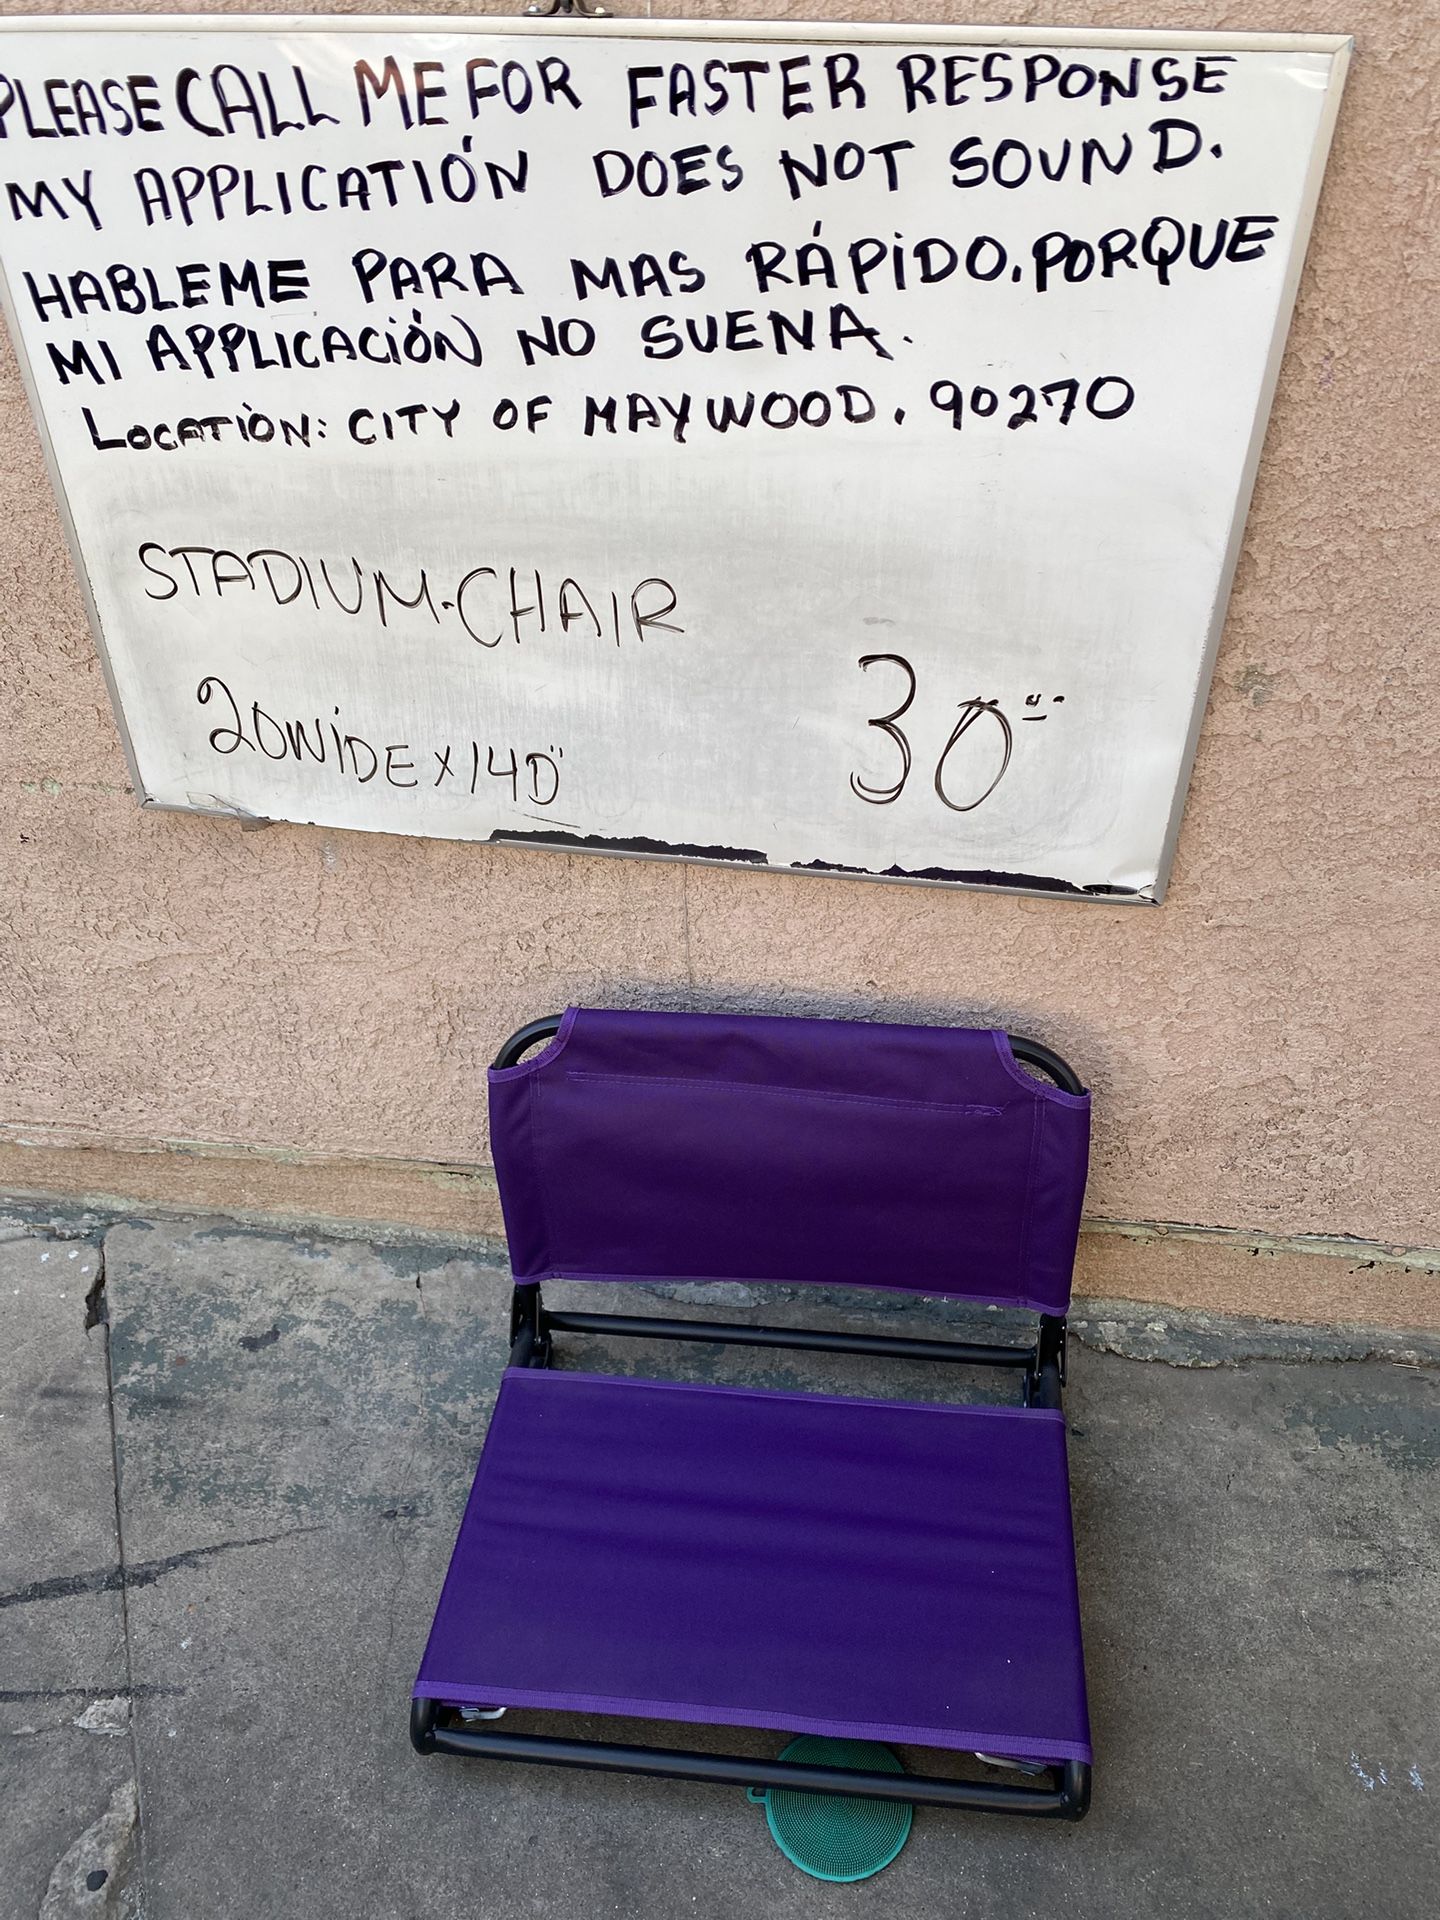 PLEASE CALL ME FOR FASTER RESPONSE
MY APPLICATIÓN DOES NOT SOUND.
HABLEME PARA MAS RÁPIDO. PORQUE
MI APPLICACIÓN NO SUENA.
LOCATIÒN: CITY OF MAYWOOD. 90270
STADIUM-CHAIR
20WIDE X 14D"
30